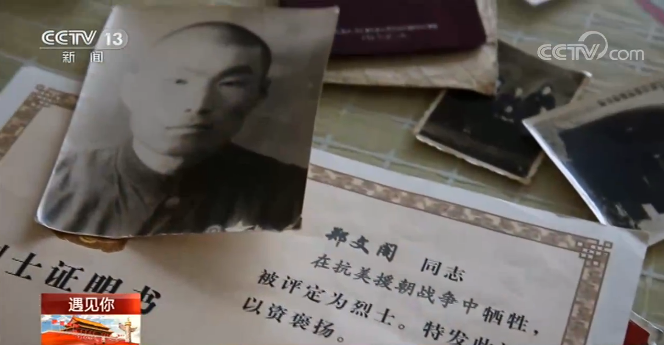 CCTV 13
新闻
CCTV.com
郑文阁 同志
在抗美援朝战争中牺牲，
被评定为烈士。特发此
以资褒扬。
士证明书
遇见你